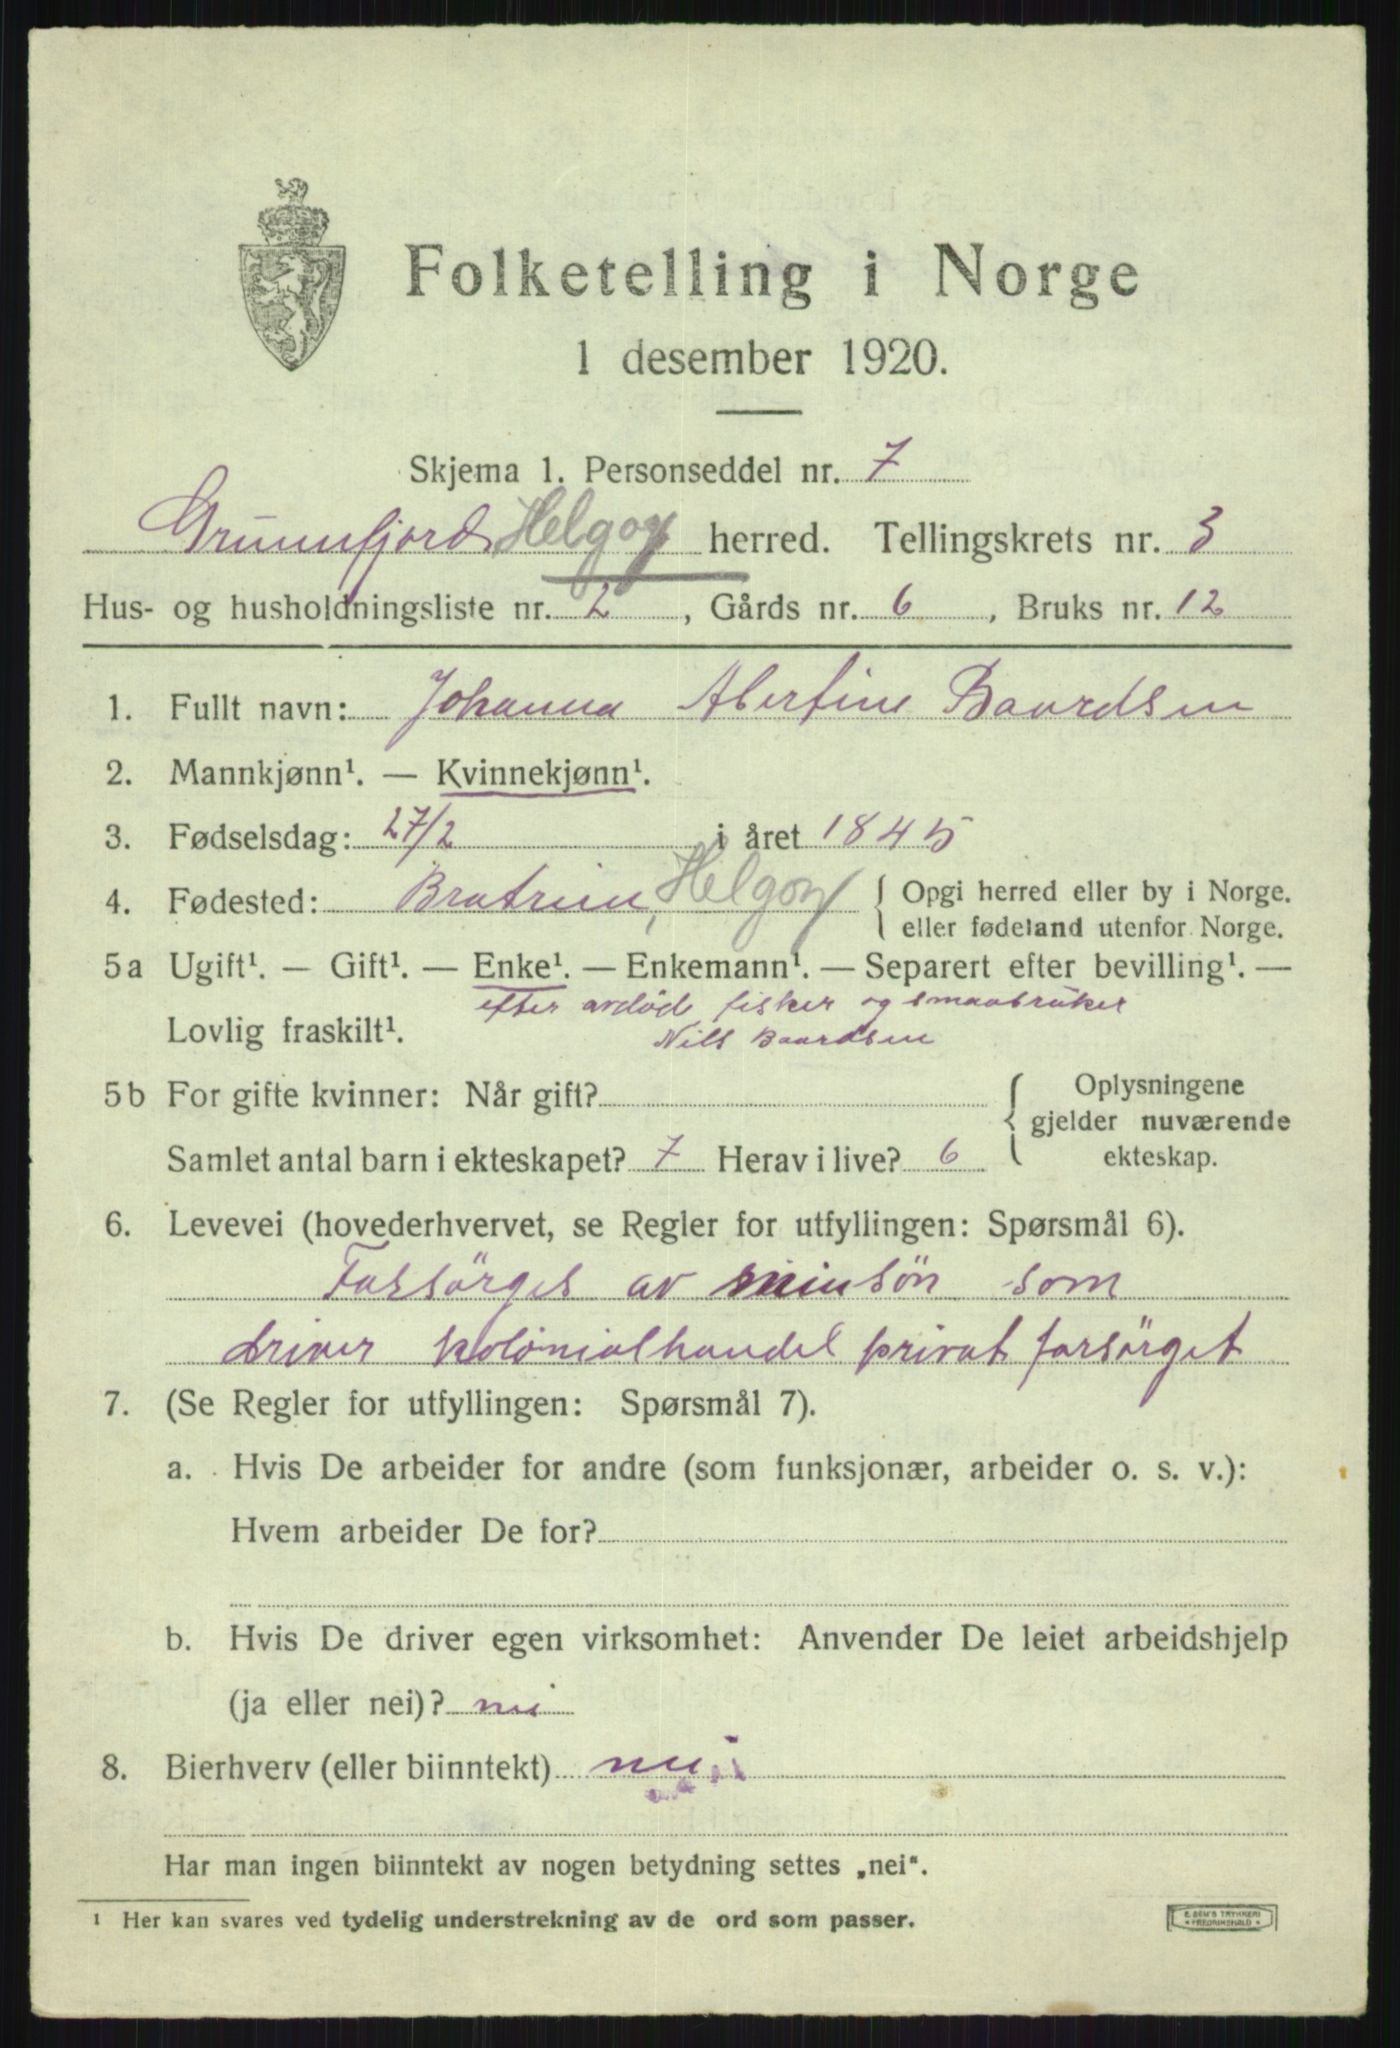 Folketelling i Norge
1 desember 1920.
Skjema 1. Personseddel nr. 7
Grunnfjord Helgøy herred. Tellingskrets nr. 3
Hus- og husholdningsliste nr. 2, Gårds nr. 6, Bruks nr. 12
1. Fullt navn: Johanna Abertine Baardsen
2. Mannkjønn¹. — Kvinnekjønn¹.
3. Fødselsdag: 27/2 i året 1845
4. Fødested: Bratrein, Helgøy { Opgi herred eller by i Norge.
eller fødeland utenfor Norge.
5a Ugift¹. — Gift¹. — Enke¹. — Enkemann¹. — Separert efter bevilling¹. —
efter avdöd fisker og smaabruker
Lovlig fraskilt¹. Nils Baardsen
5b For gifte kvinner: Når gift? { Oplysningene
gjelder nuværende
Samlet antal barn i ekteskapet? 7 Herav i live? 6 ekteskap.
6. Levevei (hovederhvervet, se Regler for utfyllingen: Spørsmål 6).
Forsörges av min sön som
driver kolonialhandel privat forsörget
7. (Se Regler for utfyllingen: Spørsmål 7).
a. Hvis De arbeider for andre (som funksjonær, arbeider o. s. v.):
Hvem arbeider De for?
b. Hvis De driver egen virksomhet: Anvender De leiet arbeidshjelp
(ja eller nei)? nei
8. Bierhverv (eller biinntekt) nei
Har man ingen biinntekt av nogen betydning settes „nei".
¹ Her kan svares ved tydelig understrekning av de ord som passer.
E. SEM'S TRYKKERI
FREDRIKSHALD